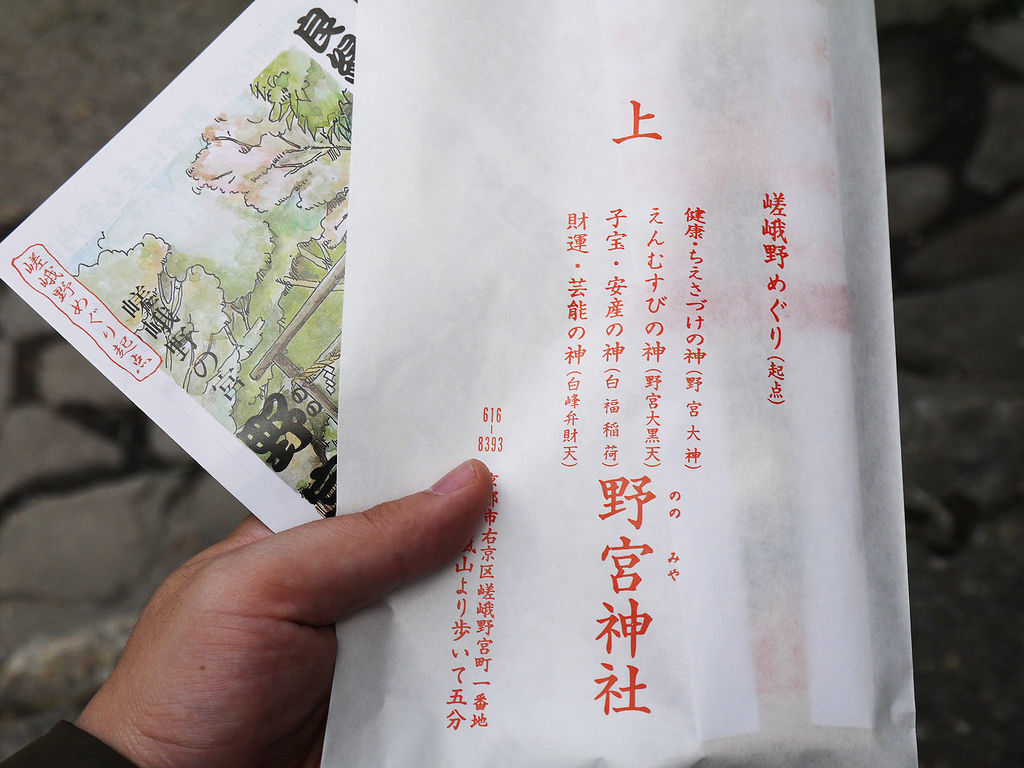 上
嵯峨野めぐり(起点)
健康・ちえさづけの神(野宮大神)
えんむすびの神(野宮大黒天)
子宝・安産の神(白福稲荷)
財運・芸能の神(白峰弁財天)
野宮神社
ののみや
616-8393
京都市右京区嵯峨野宮町一番地
嵐山より歩いて五分
良縁
嵯峨野の宮
のの
野宮
嵯峨野めぐり起点